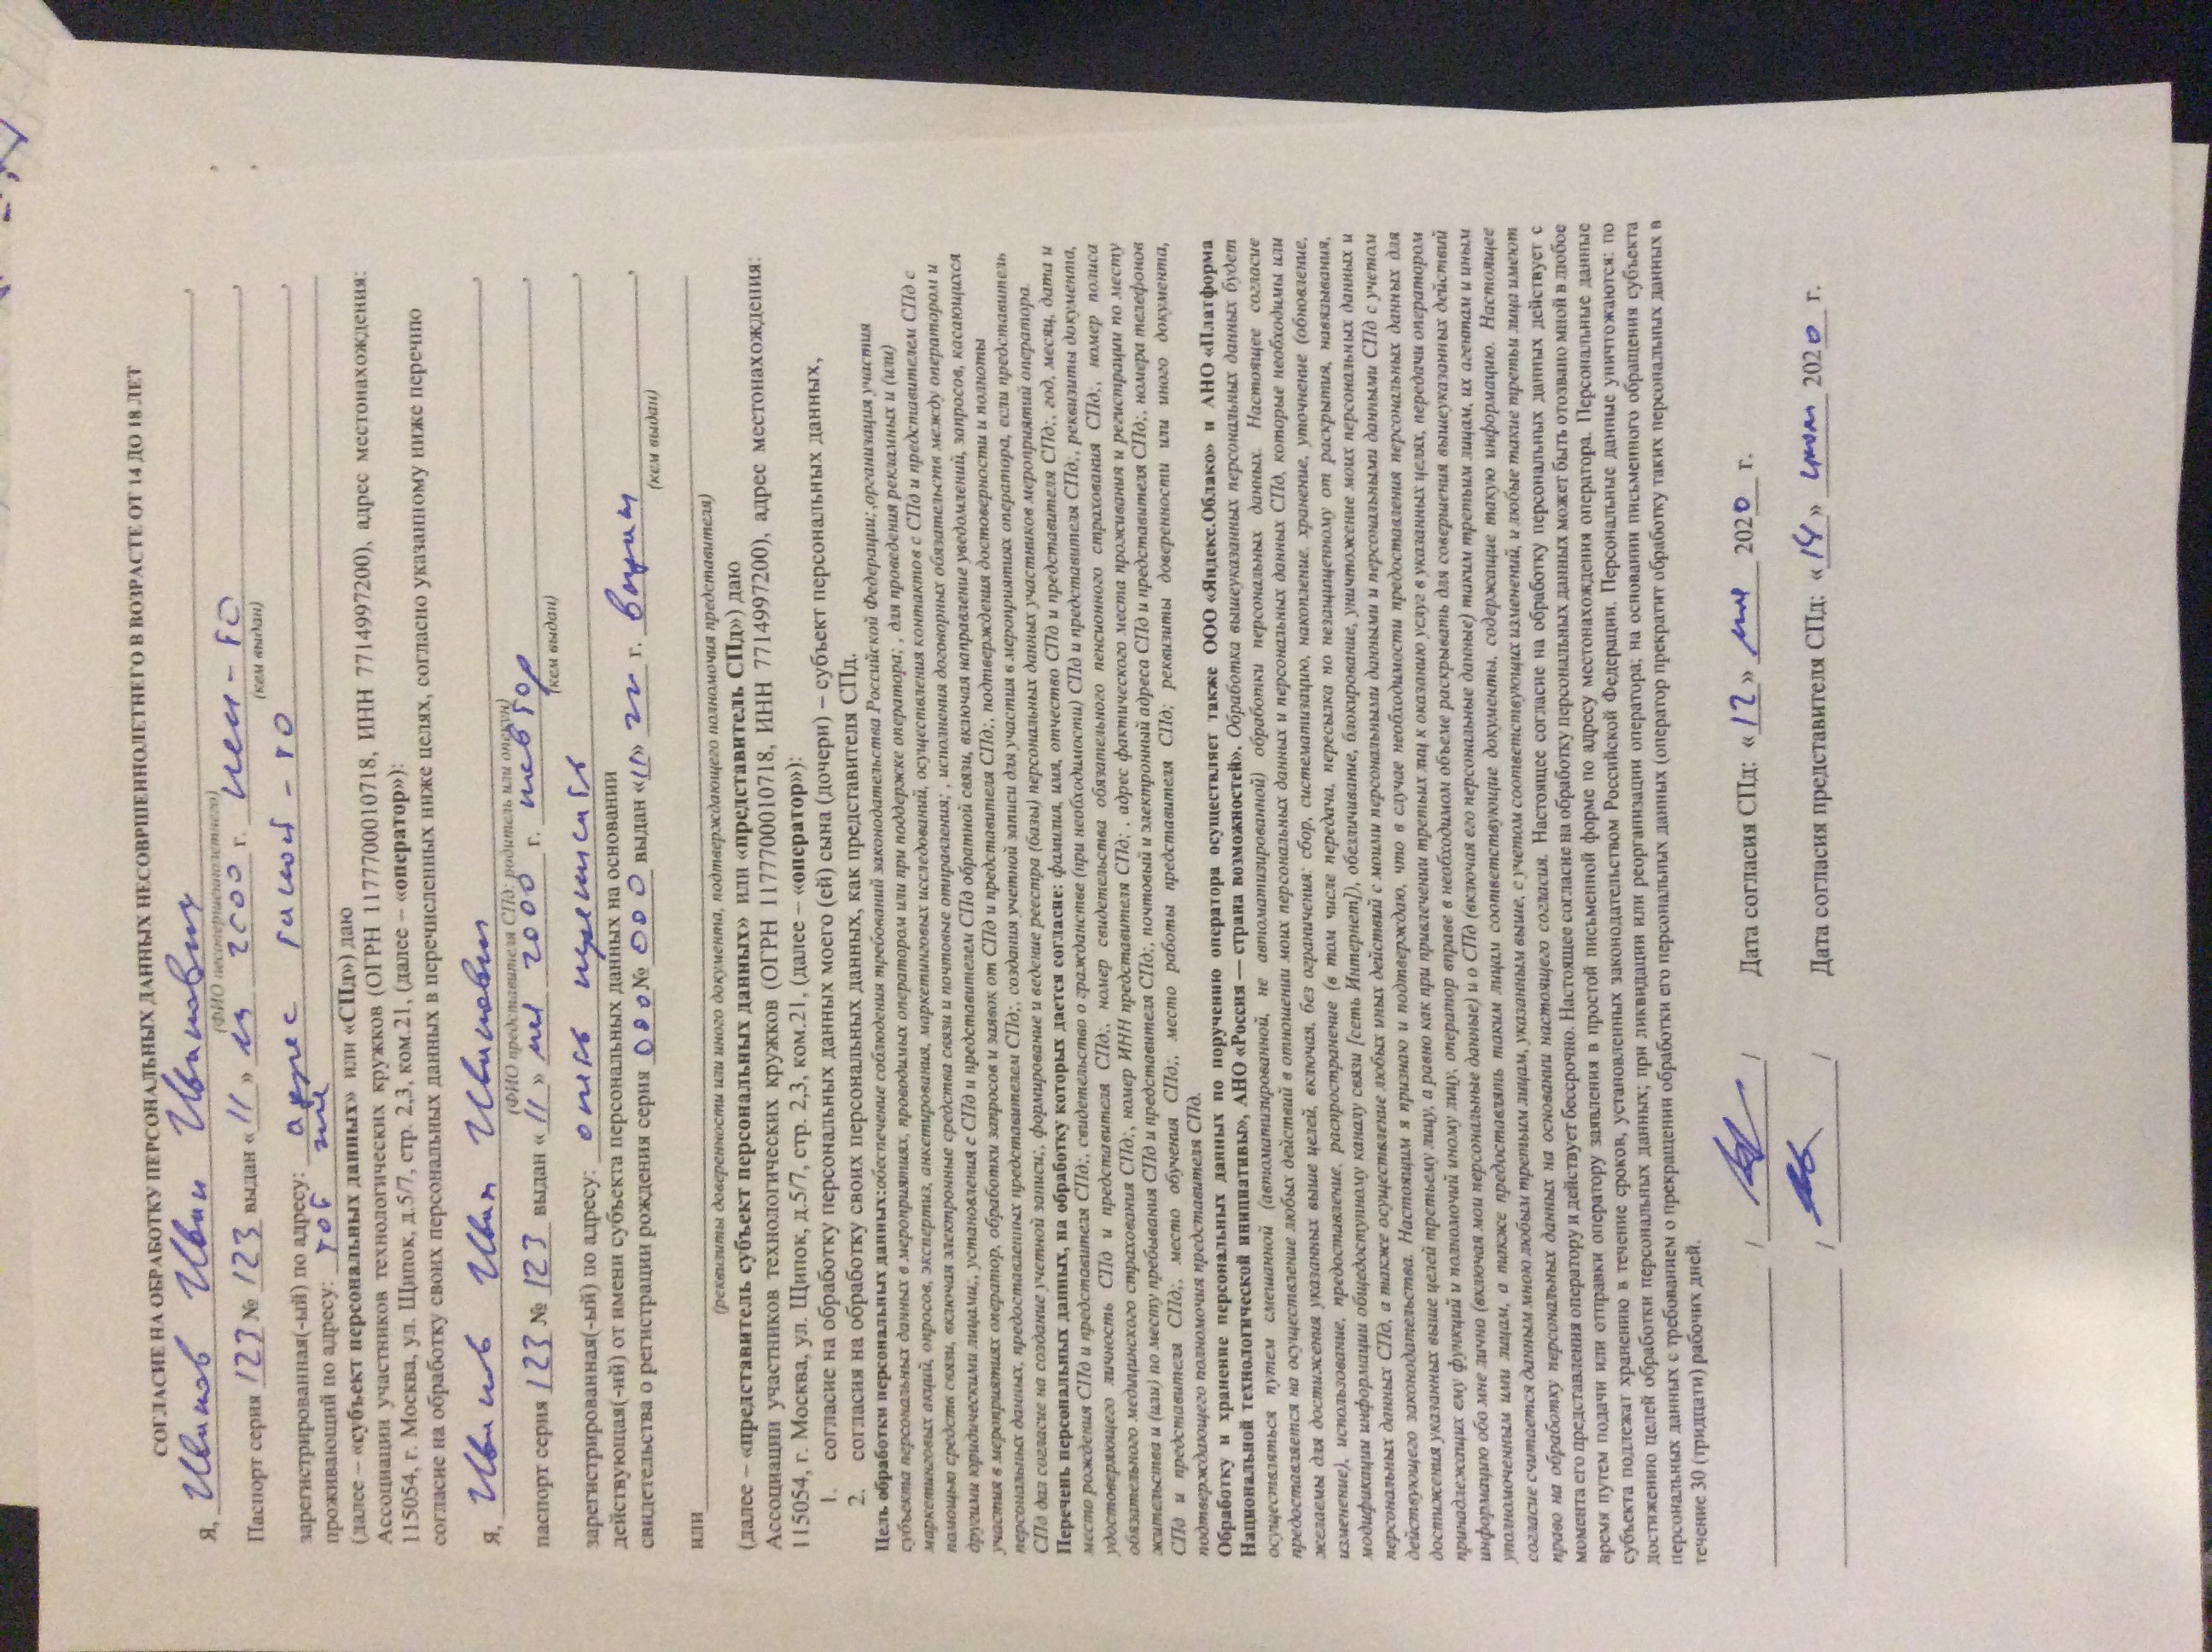 СОГЛАСИЕ НА ОБРАБОТКУ ПЕРСОНАЛЬНЫХ ДАННЫХ НЕСОВРШЕННОЛЕТНЕГО В ВОЗРАСТЕ ОТ 14 ДО 18 ЛЕТ
Я, Иванов Иван Иванович,
(ФИО несовершеннолетнего)
Паспорт серия 123 № 123 выдан «11» 2000 г. кем-то,
(кем выдан)
зарегистрированная(-ый) по адресу: адрес такой-то,
проживающий по адресу: тот же
(далее – «субъект персональных данных» или «СПд») даю
Ассоциации участников технологических кружков (ОГРН 1177700010718, ИНН 7714997200), адрес местонахождения:
115054, г. Москва, ул. Щипок, д.5/7, стр. 2,3, ком.21, (далее – «оператор»):
согласие на обработку своих персональных данных в перечисленных ниже целях, согласно указанному ниже перечню
Я, Иванов Иван Иванович,
(ФИО представителя СПд: родитель или опекун)
паспорт серия 123 № 123 выдан «11» мая 2000 г. повтор,
(кем выдан)
зарегистрированная(-ый) по адресу: опять переписать,
действующая(-ий) от имени субъекта персональных данных на основании
свидетельства о регистрации рождения серия 000 № 000 выдан «11» г.,
(кем выдан)
или
(реквизиты доверенности или иного документа, подтверждающего полномочия представителя)
(далее – «представитель субъект персональных данных» или «представитель СПд») даю
Ассоциации участников технологических кружков (ОГРН 1177700010718, ИНН 7714997200), адрес местонахождения:
115054, г. Москва, ул. Щипок, д.5/7, стр. 2,3, ком.21, (далее – «оператор»):
1. согласие на обработку персональных данных моего (ей) сына (дочери) – субъект персональных данных,
2. согласия на обработку своих персональных данных, как представителя СПд.
Цель обработки персональных данных:обеспечение соблюдения требований законодательства Российской Федерации;,организация участия
субъекта персональных данных в мероприятиях, проводимых оператором или при поддержке оператора; , для проведения рекламных и (или)
маркетинговых акций, опросов, экспертиз, анкетирования, маркетинговых исследований, осуществления контактов с СПд и представителем СПд с
помощью средств связи, включая электронные средства связи и почтовые отправления; , исполнения договорных обязательств между оператором и
другими юридическими лицами;, установления с СПд и представителем СПд обратной связи, включая направление уведомлений, запросов, касающихся
участия в мероприятиях оператор, обработки запросов и заявок от СПд и представителя СПд;, подтверждения достоверности и полноты
персональных данных, предоставленных представителем СПд;, создания учетной записи для участия в мероприятиях оператора, если представитель
СПд дал согласие на создание учетной записи;, формирование и ведение реестра (базы) персональных данных участников мероприятий оператора.
Перечень персональных данных, на обработку которых дается согласие: фамилия, имя, отчество СПд и представителя СПд;, год, месяц, дата и
место рождения СПд и представителя СПд;, свидетельство о гражданстве (при необходимости) СПд и представителя СПд;, реквизиты документа,
удостоверяющего личность СПд и представителя СПд;, номер свидетельства обязательного пенсионного страхования СПд;, номер полиса
обязательного медицинского страхования СПд;, номер ИНН представителя СПд; , адрес фактического места проживания и регистрации по месту
жительства и (или) по месту пребывания СПд и представителя СПд;, почтовый и электронный адреса СПд и представителя СПд;, номера телефонов
СПд и представителя СПд;, место обучения СПд;, место работы представителя СПд; реквизиты доверенности или иного документа,
подтверждающего полномочия представителя СПд.
Обработку и хранение персональных данных по поручению оператора осуществляет также ООО «Яндекс.Облако» и АНО «Платформа
Национальной технологической инициативы», АНО «Россия — страна возможностей». Обработка вышеуказанных персональных данных будет
осуществляться путем смешанной (автоматизированной, не автоматизированной) обработки персональных данных. Настоящее согласие
предоставляется на осуществление любых действий в отношении моих персональных данных и персональных данных СПд, которые необходимы или
желаемы для достижения указанных выше целей, включая, без ограничения: сбор, систематизацию, накопление, хранение, уточнение (обновление,
изменение), использование, предоставление, распространение (в том числе передача, пересылка по незащищенному от раскрытия, навязывания,
модификации информации общедоступному каналу связи [сеть Интернет]), обезличивание, блокирование, уничтожение моих персональных данных и
персональных данных СПд, а также осуществление любых иных действий с моими персональными данными и персональными данными СПд с учетом
действующего законодательства. Настоящим я признаю и подтверждаю, что в случае необходимости предоставления персональных данных для
достижения указанных выше целей третьему лицу, а равно как при привлечении третьих лиц к оказанию услуг в указанных целях, передачи оператором
принадлежащих ему функций и полномочий иному лицу, оператор вправе в необходимом объеме раскрывать для совершения вышеуказанных действий
информацию обо мне лично (включая мои персональные данные) и о СПд (включая его персональные данные) таким третьим лицам, их агентам и иным
уполномоченным ими лицам, а также предоставлять таким лицам соответствующие документы, содержащие такую информацию. Настоящее
согласие считается данным мною любым третьим лицам, указанным выше, с учетом соответствующих изменений, и любые такие третьи лица имеют
право на обработку персональных данных на основании настоящего согласия. Настоящее согласие на обработку персональных данных действует с
момента его представления оператору и действует бессрочно. Настоящее согласие на обработку персональных данных может быть отозвано мной в любое
время путем подачи или отправки оператору заявления в простой письменной форме по адресу местонахождения оператора. Персональные данные
субъекта подлежат хранению в течение сроков, установленных законодательством Российской Федерации. Персональные данные уничтожаются: по
достижению целей обработки персональных данных; при ликвидации или реорганизации оператора; на основании письменного обращения субъекта
персональных данных с требованием о прекращении обработки его персональных данных (оператор прекратит обработку таких персональных данных в
течение 30 (тридцати) рабочих дней.
/ / Дата согласия СПд: «12» мая 2020 г.
/ / Дата согласия представителя СПд: «14» июля 2020 г.